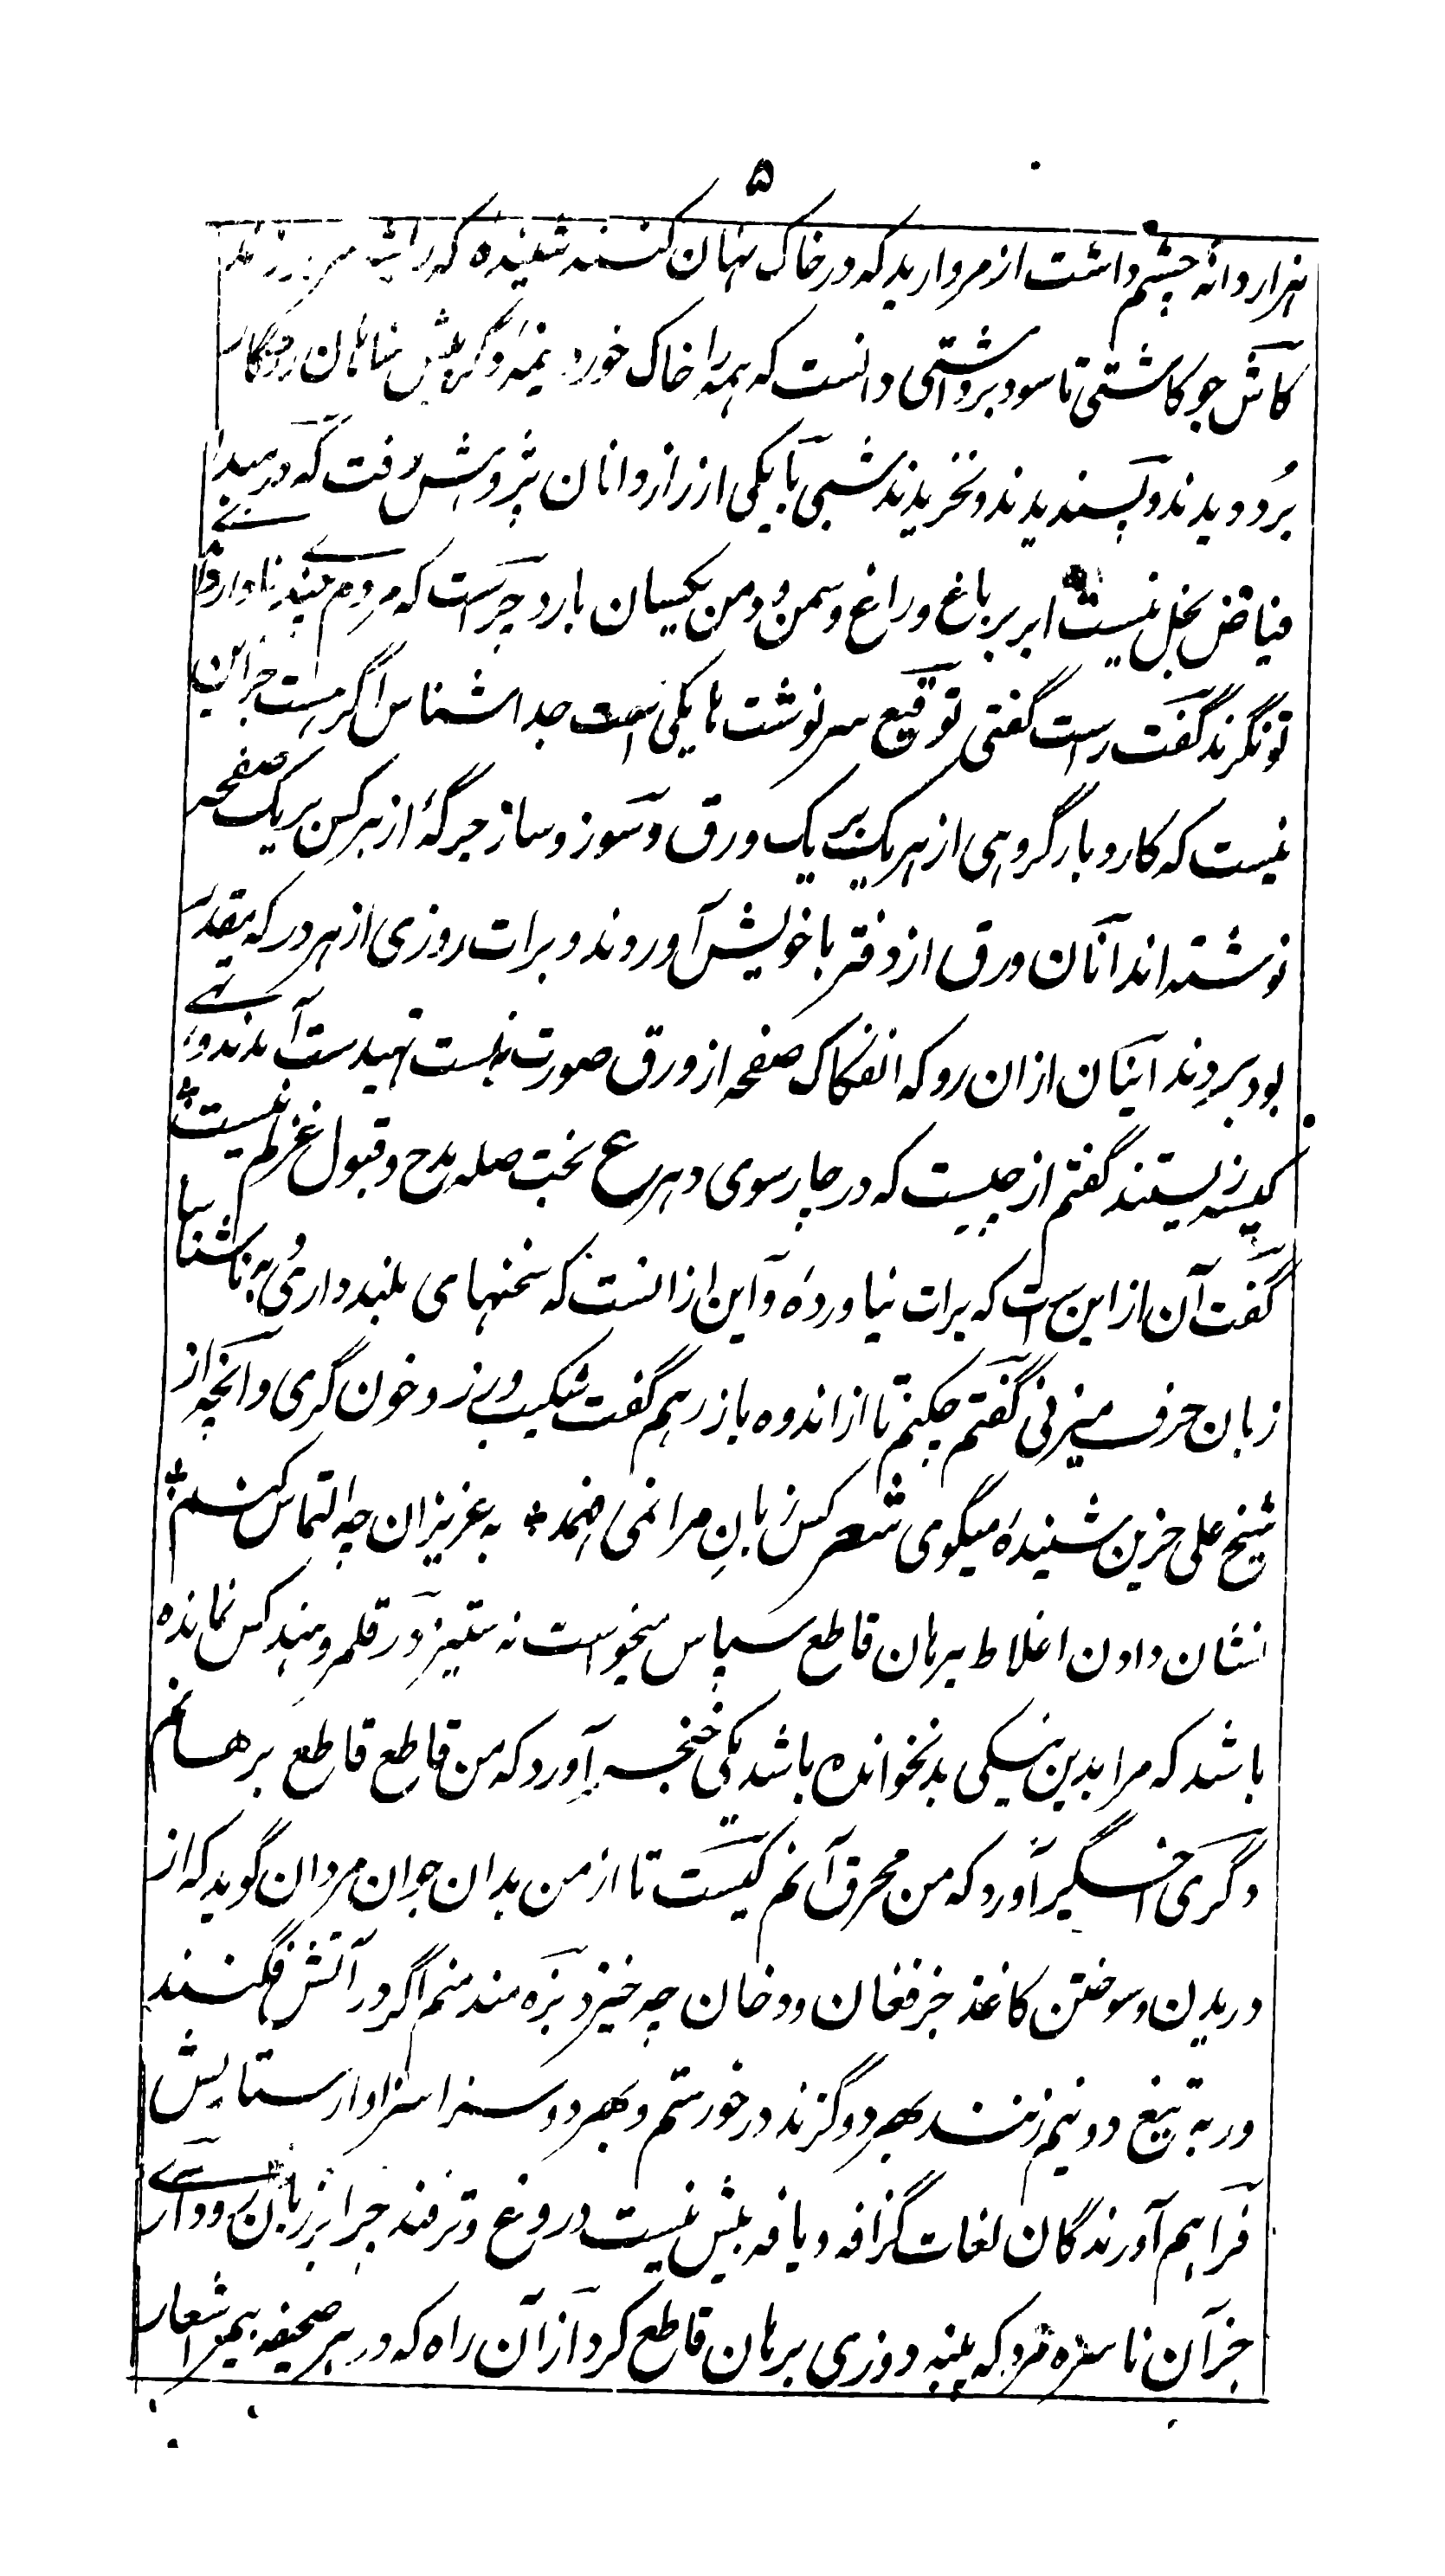 ۵
هزار دانه چشم داشت از مروارید که در خاک نهان کنند شنیده که
کاش جو کاشتی تا سود برداشتی دانست که همه را خاک خورد نیمهٔ دگر پیش شاهان روزگار
برد دیدند و پسندیدند و نخریدند شبی با یکی از رازدانان پژوهش رفت که در مبدا
فیاض بخل نیست ابر بر باغ و راغ و سمن و دمن یکسان بارد چراست که مردم
تونگرند گفت راست گفتی توقیع سرنوشت ها یکی است جدا شناس اگر هست جز این
نیست که کاروبار گروهی از هر یک بر یک ورق و سوز و ساز جرگهٔ از هر کس بر یک صفحه
نوشته اند آنان ورق از دفتر با خویش آوردند و برات روزی از هر در که مقدر
بود بردند اینان ازان رو که انفکاک صفحه از ورق صورت نبست تهیدست آمدند و تهی
کیسه زیستند گفتم از چیست که در چارسوی دهر ع بخت صلهٔ مدح و قبول غزلم نیست
گفت آن از این است که برات نیاوردهٔ و این ازانست که سخنهای بلند داری و به ناشناسا
زبان حرف میزنی گفتم چکنم تا از اندوه باز رهم گفت شکیب ورز و خون گری و آنچه از
شیخ علی حزین شنیدهٔ میگوی شعر کس زبانِ مرا نمی فهمد * به عزیزان چه التماس کنم *
نشان دادن اغلاط برهان قاطع سپاس میخواست نه ستیز در قلمرو هند کس نمانده
باشد که مرا بدین نیکی بد نخوانده باشد یکی خنجر آورد که من قاطع قاطع برهانم
دگری اخگر آورد که من محرق آنم کیست تا از من بدان جوان مردان گوید که از
دریدن و سوختن کاغذ جز فغان و دخان چه خیزد بزه مند منم اگر در آتش فگنند
ور به تیغ دو نیم زنند بهر دو گزند در خورستم و بهر دو سزا سزاوار ستایش
فراهم آورندگان لغات گزافه و یافه بیش نیست دروغ و ترفند چرا بر زبان رود آرے
جز آن ناسره مرد که پنبه دوزی برهان قاطع کرد ازان راه که در هر صحیفه بیمر اشعار